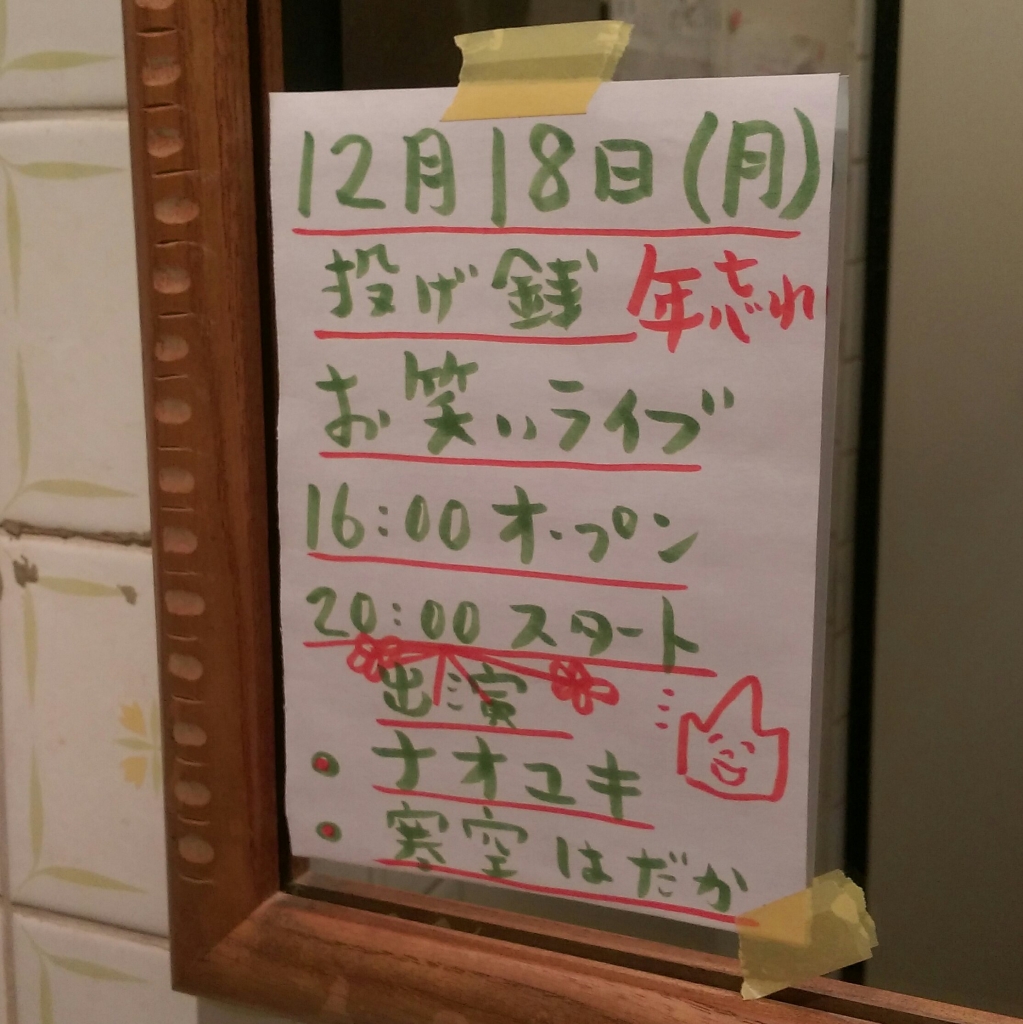 12月18日(月)
投げ銭 年忘れ
お笑いライブ
16:00 オープン
20:00 スタート
出演
・ナオユキ
・寒空はだか